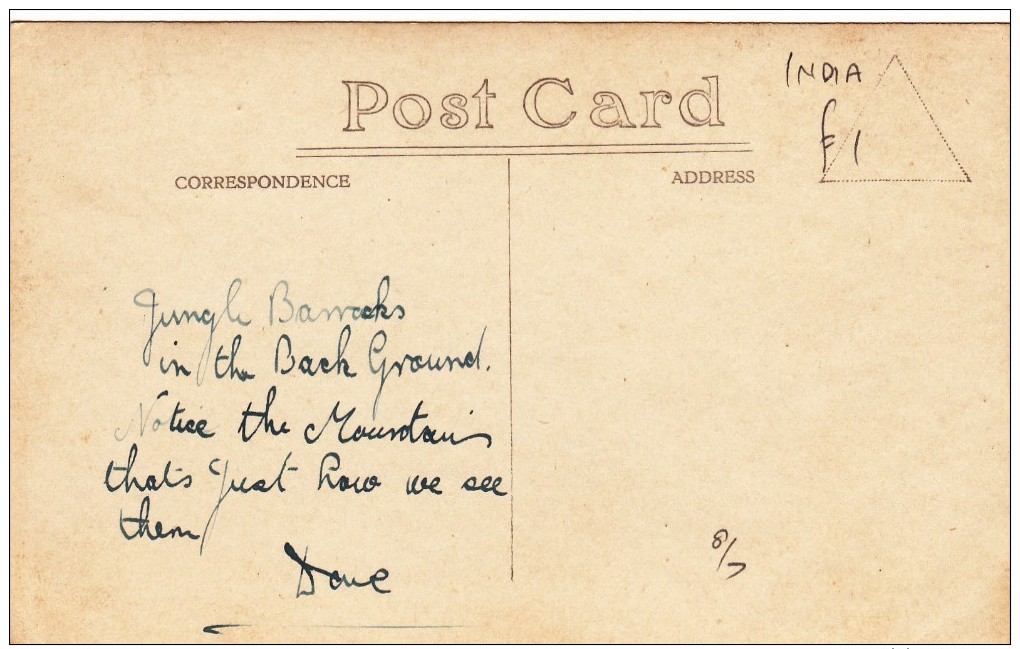 Post Card
INDIA
£1
CORRESPONDENCE
ADDRESS
Jungle Barracks
in the Back Ground.
Notice the Mountains
thats just how we see
them
Dave
8/7